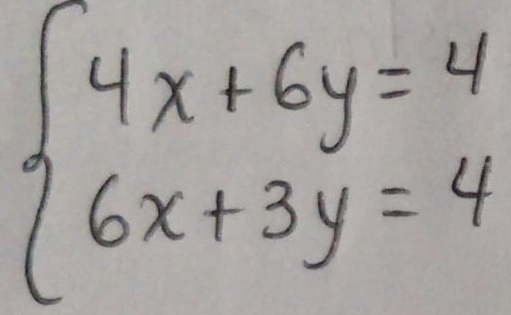 4x + 6y = 4
6x + 3y = 4